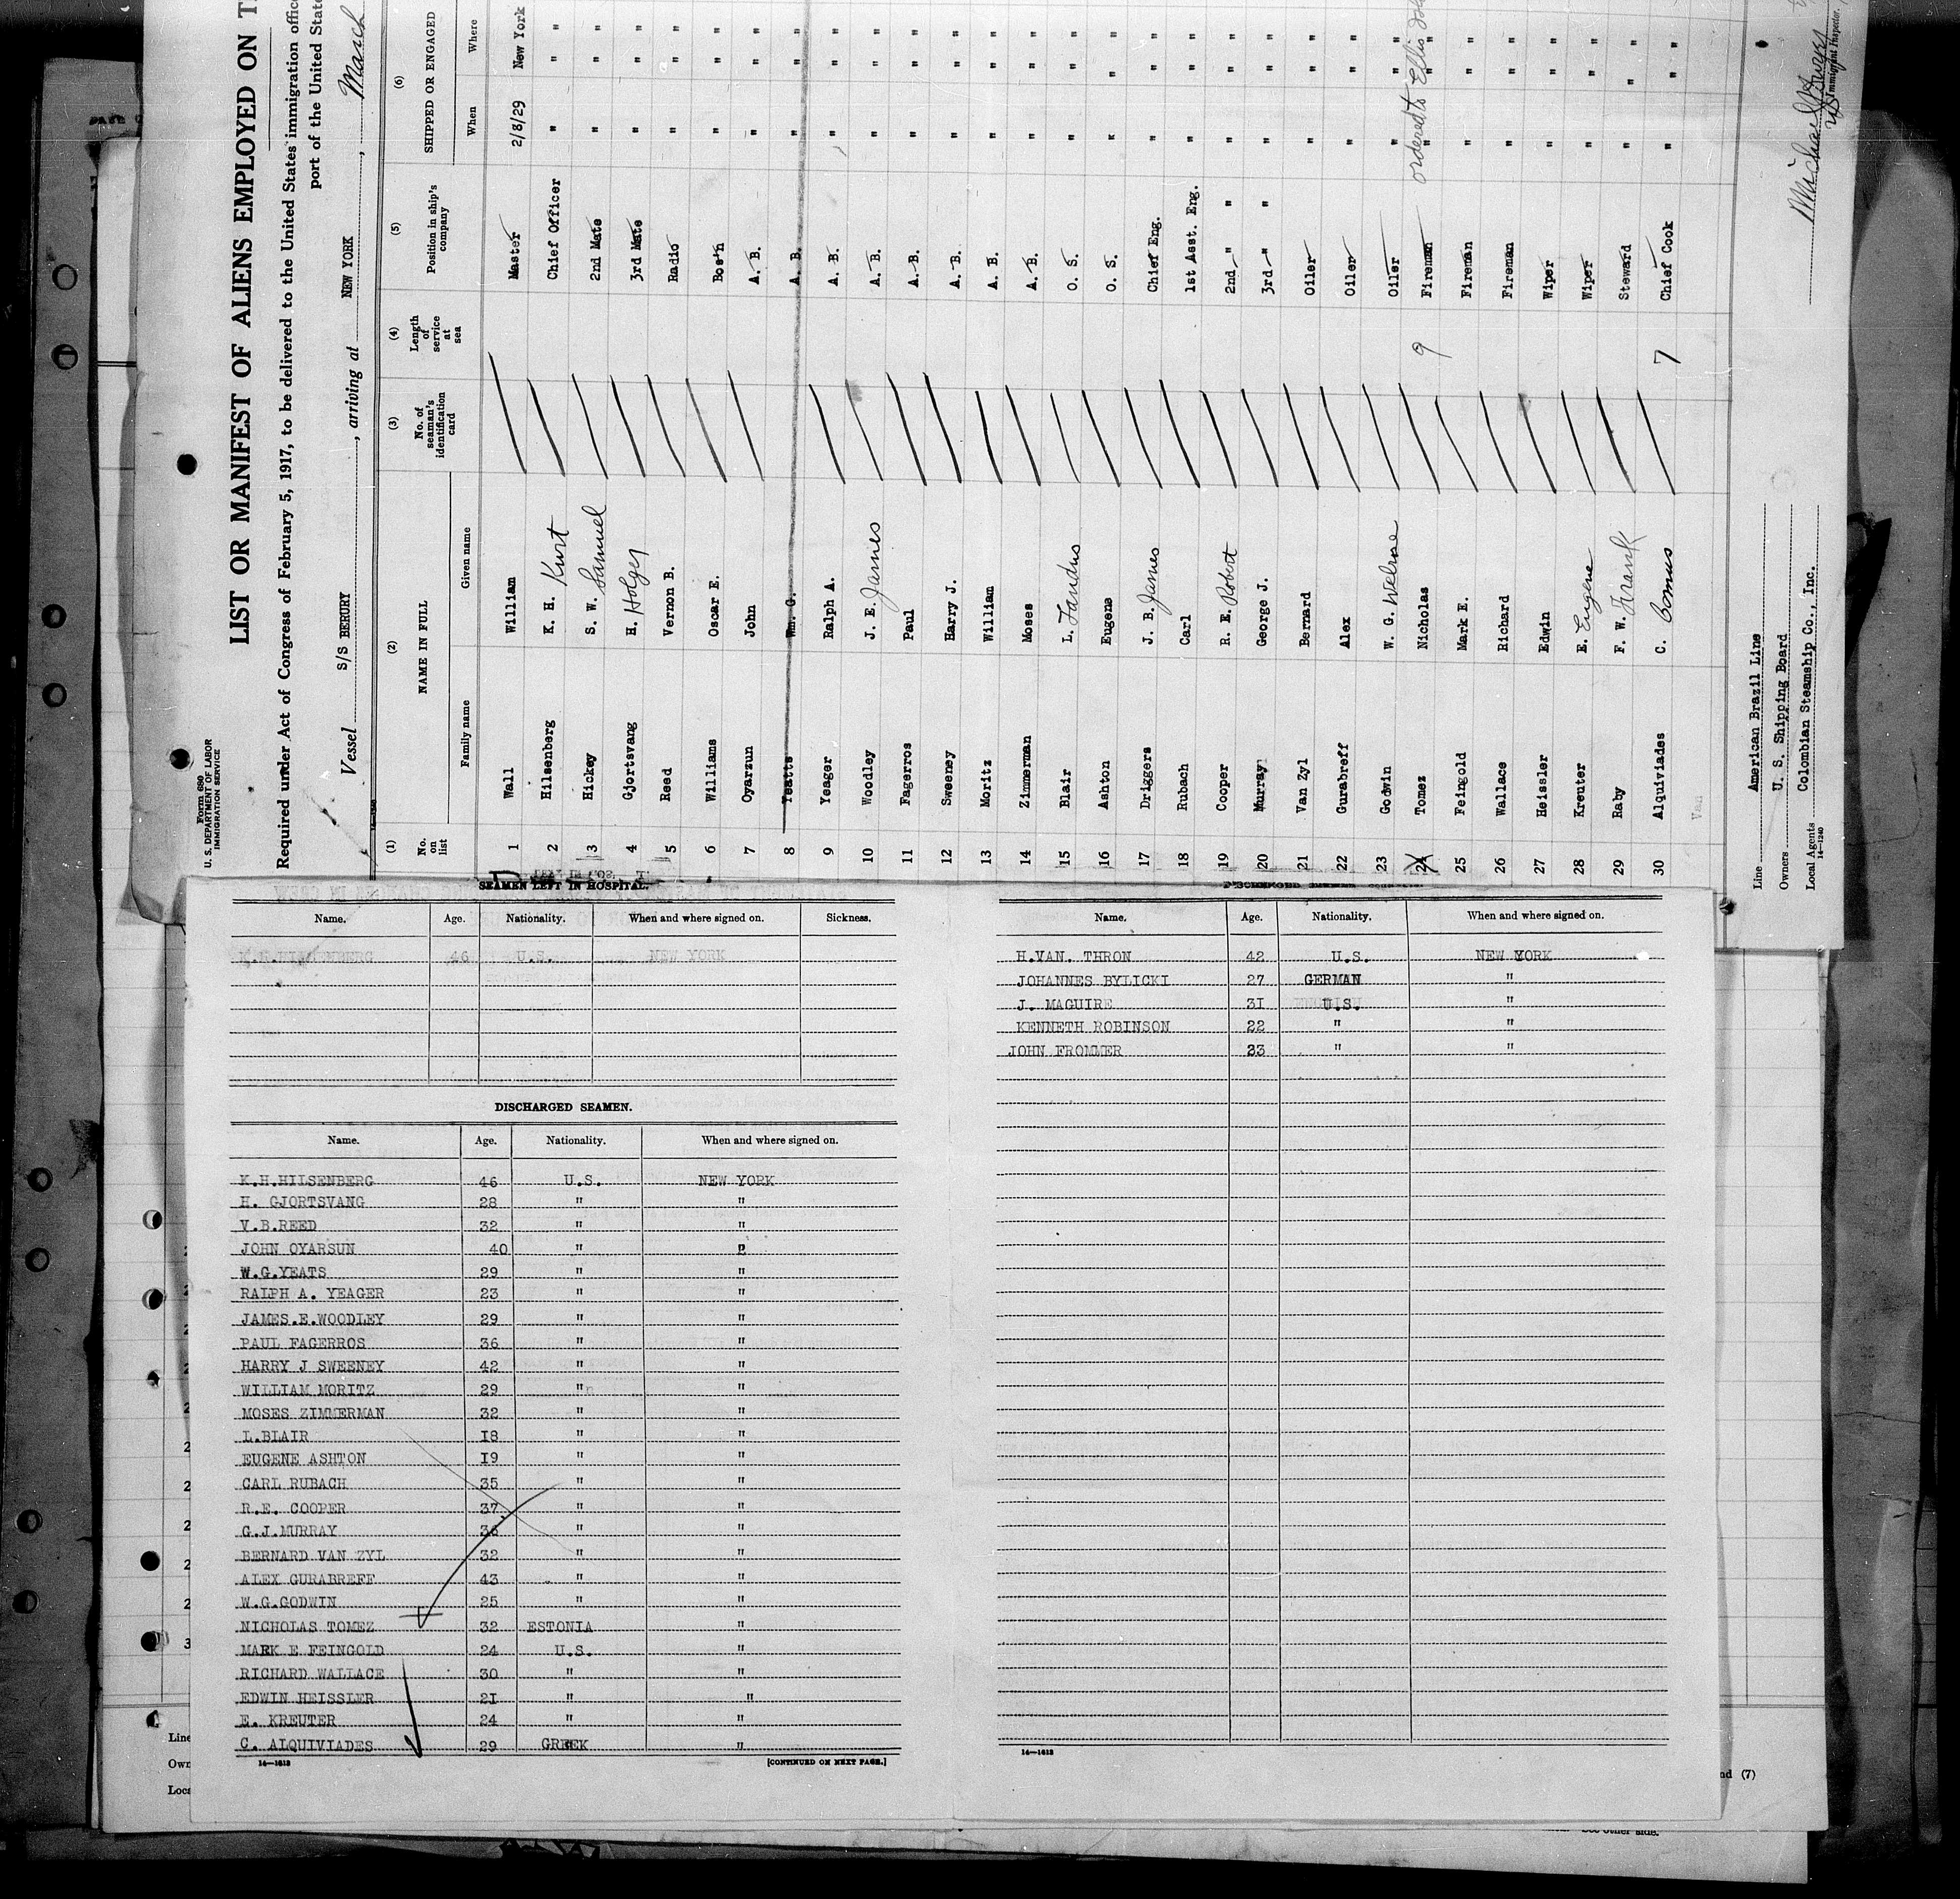 Form 680
U. S. DEPARTMENT OF LABOR
IMMIGRATION SERVICE
LIST OR MANIFEST OF ALIENS EMPLOYED ON
Required under Act of Congress of February 5, 1917, to be delivered to the United States immigration
port of the United
Vessel S/S BERURY, arriving at NEW YORK, March
(1) (2) (3) (4) (5) (6)
No. on list NAME IN FULL No. of seaman's identification card Length of service at sea Position in ship's company SHIPPED OR ENGAGED
Family name Given name When Where
1 Wall William Master 2/8/29 New York
2 Hilsenberg K. H. Kurt Chief Officer " " "
3 Hickey S. W. Samuel 2nd Mate " " "
4 Gjortsvang H. Holger 3rd Mate " " "
5 Reed Vernon B. Radio " " "
6 Williams Oscar E. Bos'n " " "
7 Oyarzun John A. B. " " "
8 Yeatts Wm. G. A. B. " " "
9 Yeager Ralph A. A. B. " " "
10 Woodley J. E. James A. B. " " "
11 Fagerros Paul A. B. " " "
12 Sweeney Harry J. A. B. " " "
13 Moritz William A. B. " " "
14 Zimmerman Moses A. B. " " "
15 Blair L. Landus O. S. " " "
16 Ashton Eugene O. S. " " "
17 Driggers J. B. James Chief Eng. " " "
18 Rubach Carl 1st Asst. Eng. " " "
19 Cooper R. E. Robert 2nd " " " " "
20 Murray George J. 3rd " " " " "
21 Van Zyl Bernard Oiler " " "
22 Gurabreff Alex Oiler " " "
23 Godwin W. G. Oiler " " "
24 Tomez Nicholas 9 Fireman " " " ordered to Ellis
25 Feingold Mark E. Fireman " " "
26 Wallace Richard Fireman " " "
27 Heissler Edwin Wiper " " "
28 Kreuter E. Eugene Wiper " " "
29 Raby F. W. Frank Steward " " "
30 Alquiviades C. 7 Chief Cook " " "
Line American Brazil Line
Owners U. S. Shipping Board
Local Agents Colombian Steamship Co., Inc.
14-1240
Immigrant Inspector.
SEAMEN LEFT IN HOSPITAL.
Name. Age. Nationality. When and where signed on. Sickness.
K.H.HILSENBERG 46 U.S. NEW YORK
DISCHARGED SEAMEN.
Name. Age. Nationality. When and where signed on.
K.H.HILSENBERG 46 U.S. NEW YORK
H. GJORTSVANG 28 " "
V.B.REED 32 " "
JOHN OYARSUN 40 " "
W.G.YEATS 29 " "
RALPH A. YEAGER 23 " "
JAMES.E.WOODLEY 29 " "
PAUL FAGERROS 36 " "
HARRY J SWEENEY 42 " "
WILLIAM MORITZ 29 " "
MOSES ZIMMERMAN 32 " "
L.BLAIR 18 " "
EUGENE ASHTON 19 " "
CARL RUBACH 35 " "
R.E. COOPER 37 " "
G.J.MURRAY 36 " "
BERNARD VAN ZYL 32 " "
ALEX GURABREFF 43 " "
W.G.GODWIN 25 " "
NICHOLAS TOMEZ 32 ESTONIA "
MARK E FEINGOLD 24 U.S. "
RICHARD WALLACE 30 " "
EDWIN HEISSLER 21 " "
E. KREUTER 24 " "
C. ALQUIVIADES 29 GREEK "
14-1613 [CONTINUED ON NEXT PAGE.]
Name. Age. Nationality. When and where signed on.
H.VAN. THRON 42 U.S. NEW YORK
JOHANNES BYLICKI 27 GERMAN "
J. MAGUIRE 31 U.S. "
KENNETH ROBINSON 22 " "
JOHN FROMMER 23 " "
14-1613
Line